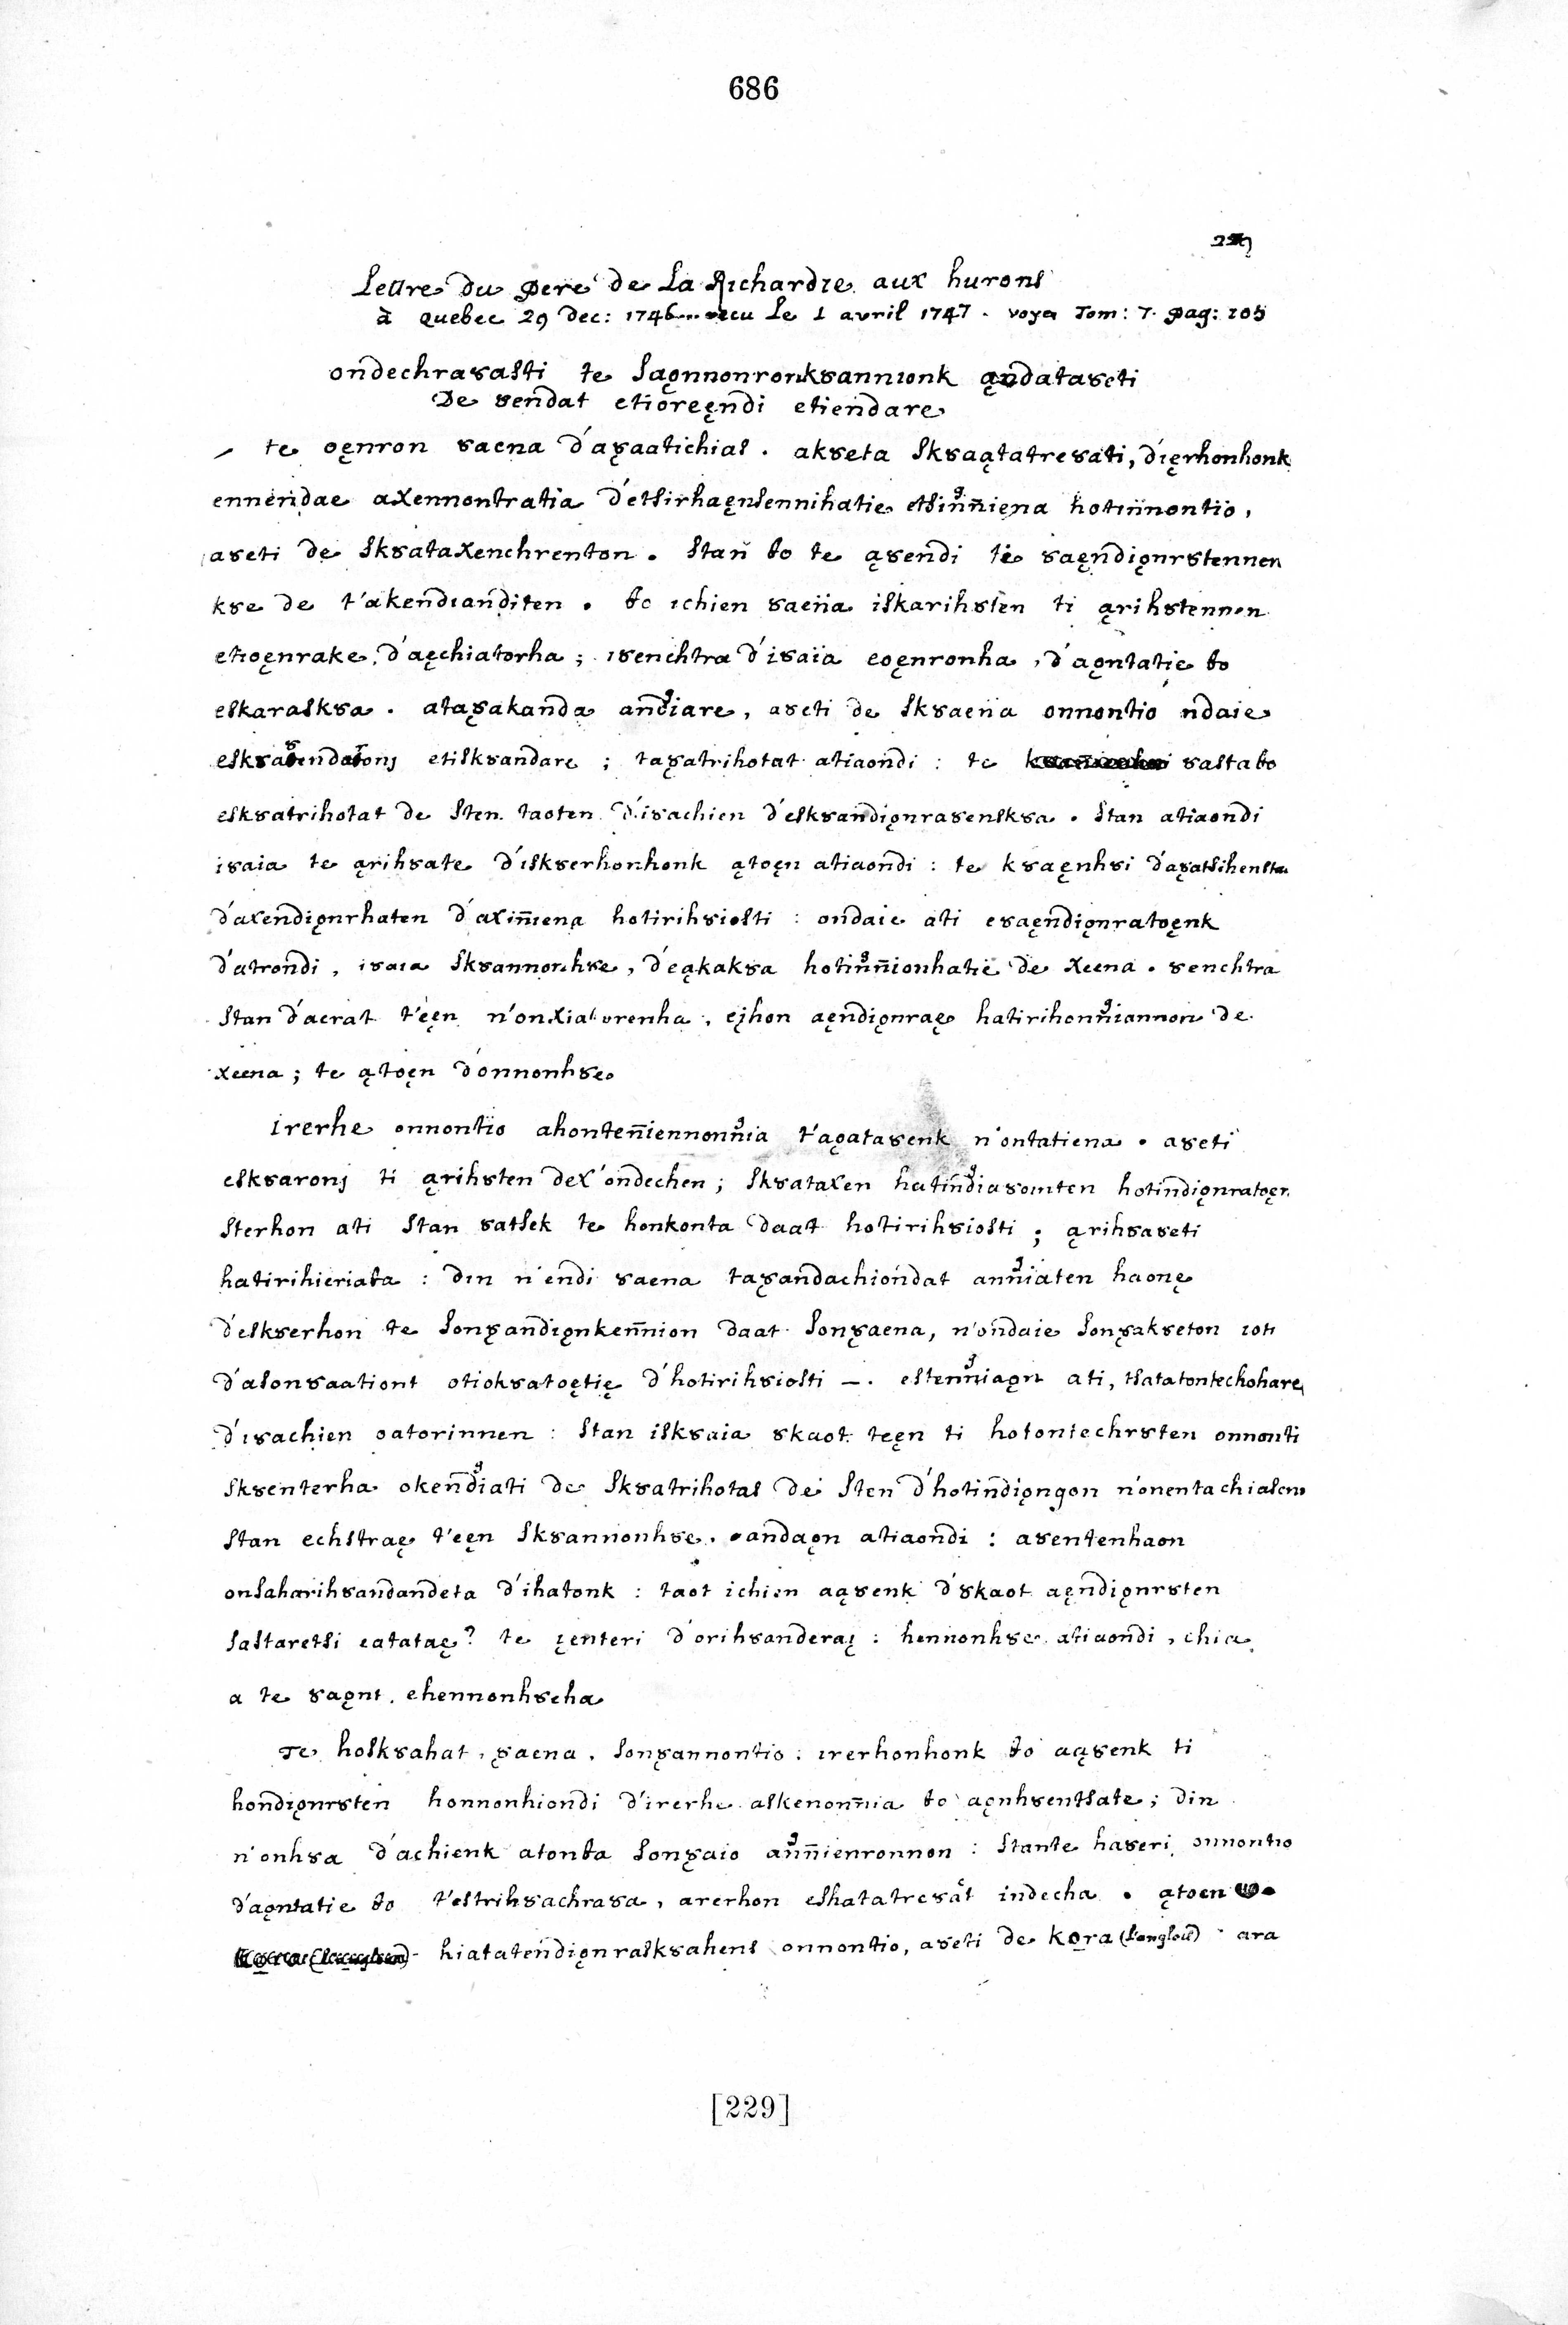 686
229
Lettre du pere de La Richardie aux hurons
à quebec 29 Dec: 1746... recu le 1 avril 1747. voyez Tom: 7. pag: 105
ondechraȣasti te saǫnnonronkȣannionk ąndataȣeti
De ȣendat etioreęndi etiendare
te oęnron ȣaena d'aȣaatichias. akȣeta skȣaątatreȣati, d'ięrhonhonk
ennendae axennontratia d'etsirhaęnsennihatie etsinniena hotinnontio,
aȣeti de skȣataxenchrenton. stan to te ąȣendi te ȣaęndiǫnrȣtennen
kȣe de t'akendianditen. to ichien ȣaena iskarihȣten ti ąrihȣtennen
etioęnrake, d'aęchiatorha; iȣenchtra d'iȣaia eoęnronha, d'aǫntatie to
eskaraskȣa. ataȣakanda andiare, aȣeti de skȣaena onnontio ndaie
eskȣaȣendatonȷ etiskȣandare; taȣatrihotat atiaondi: te ȣastato
eskȣatrihotat de sten taoten d'iȣachien d'eskȣandiǫnraȣenskȣa. stan atiaondi
iȣaia te ąrihȣate d'iskȣerhonhonk ątoęn atiaondi: te kȣaęnhȣi d'aȣatsihensta
d'axendiǫnrhaten d'axinniena hotirihȣiosti: ondaie ati eȣaęndiǫnratoęnk
d'atrondi, iȣaia skȣannonhȣe, d'eąkakȣa hotinnionhatie de xeena. ȣenchtra
stan d'aerat t'eęn n'onxiatorenha, eįhon aęndiǫnraę hatirihonniannon de
xeena; te ątoęn d'onnonhȣe
irerhe onnontio ahontenniennonnia t'aǫataȣenk n'ontatiena. aȣeti
eskȣaronȷ ti ąrihȣten dex'ondechen; skȣataxen hatindiaȣointen hotindiǫnratoęn
sterhon ati stan ȣatsek te honkonta daat hotirihȣiosti; ąrihȣaȣeti
hatirihieriata: din n'endi ȣaena taȣandachiondat anniaten haonę
d'eskȣerhon te sonȣandiǫnkennion daat sonȣaena, n'ondaie sonȣakȣeton ioti
d'asonȣaationt otiokȣatoętię d'hotirihȣiosti —. estenniaǫn ati, tsatatontechohare
d'iȣachien oatorinnen: stan iskȣaia skaot teęn ti hotontechrȣten onnonti
skȣenterha okendiati de skȣatrihotas de sten d'hotindiǫngon n'onentachiasen
stan echstraę t'eęn skȣannonhȣe. andaǫn atiaondi: aȣentenhaon
onsaharihȣandandeta d'ihatonk: taot ichien aąȣenk d'skaot aęndiǫnrȣten
sastaretsi eatataę? te įenteri d'orihȣanderaį: hennonhȣe atiaondi, chia
a te ȣaǫnt. ehennonhȣeha
Te hoskȣahat, ȣaena, sonȣannontio: irerhonhonk to aąȣenk ti
hondiǫnrȣten honnonhiondi d'irerhe askenonnia to aǫnhȣentsate; din
n'onhȣa d'achienk atonta sonȣaio annienronnon: stante haȣeri onnontio
d'aǫntatie to t'estrihȣachraȣa, arerhon eshatatreȣat indecha. ątoen
hiatatendiǫnraskȣahens onnontio, aȣeti de kora (l'anglois) ara
[229]